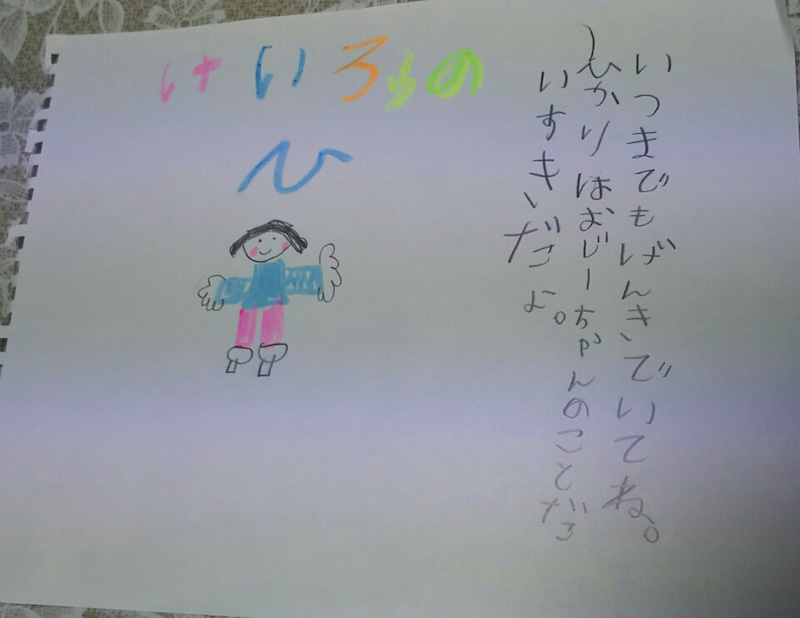 けいろうの
ひ
いつまでもげんきでいてね。
ひかりはおじーちゃんのことだ
いすきだよ。